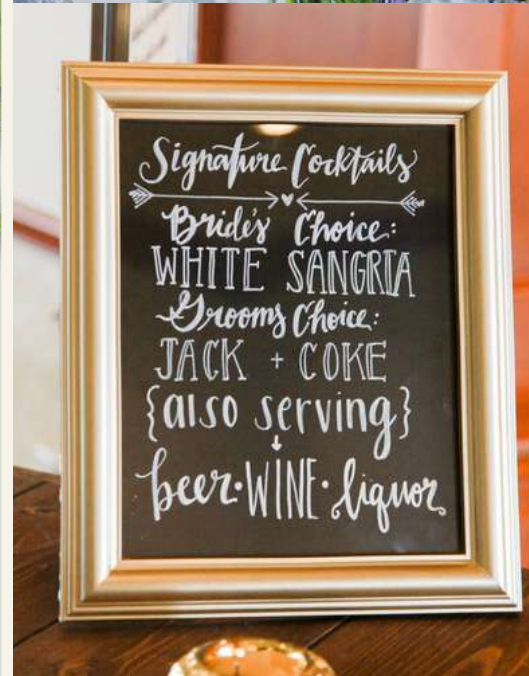 Signature Cocktails
Bride's Choice:
WHITE SANGRIA
Grooms Choice:
JACK + COKE
{also serving}
beer · WINE · liquor